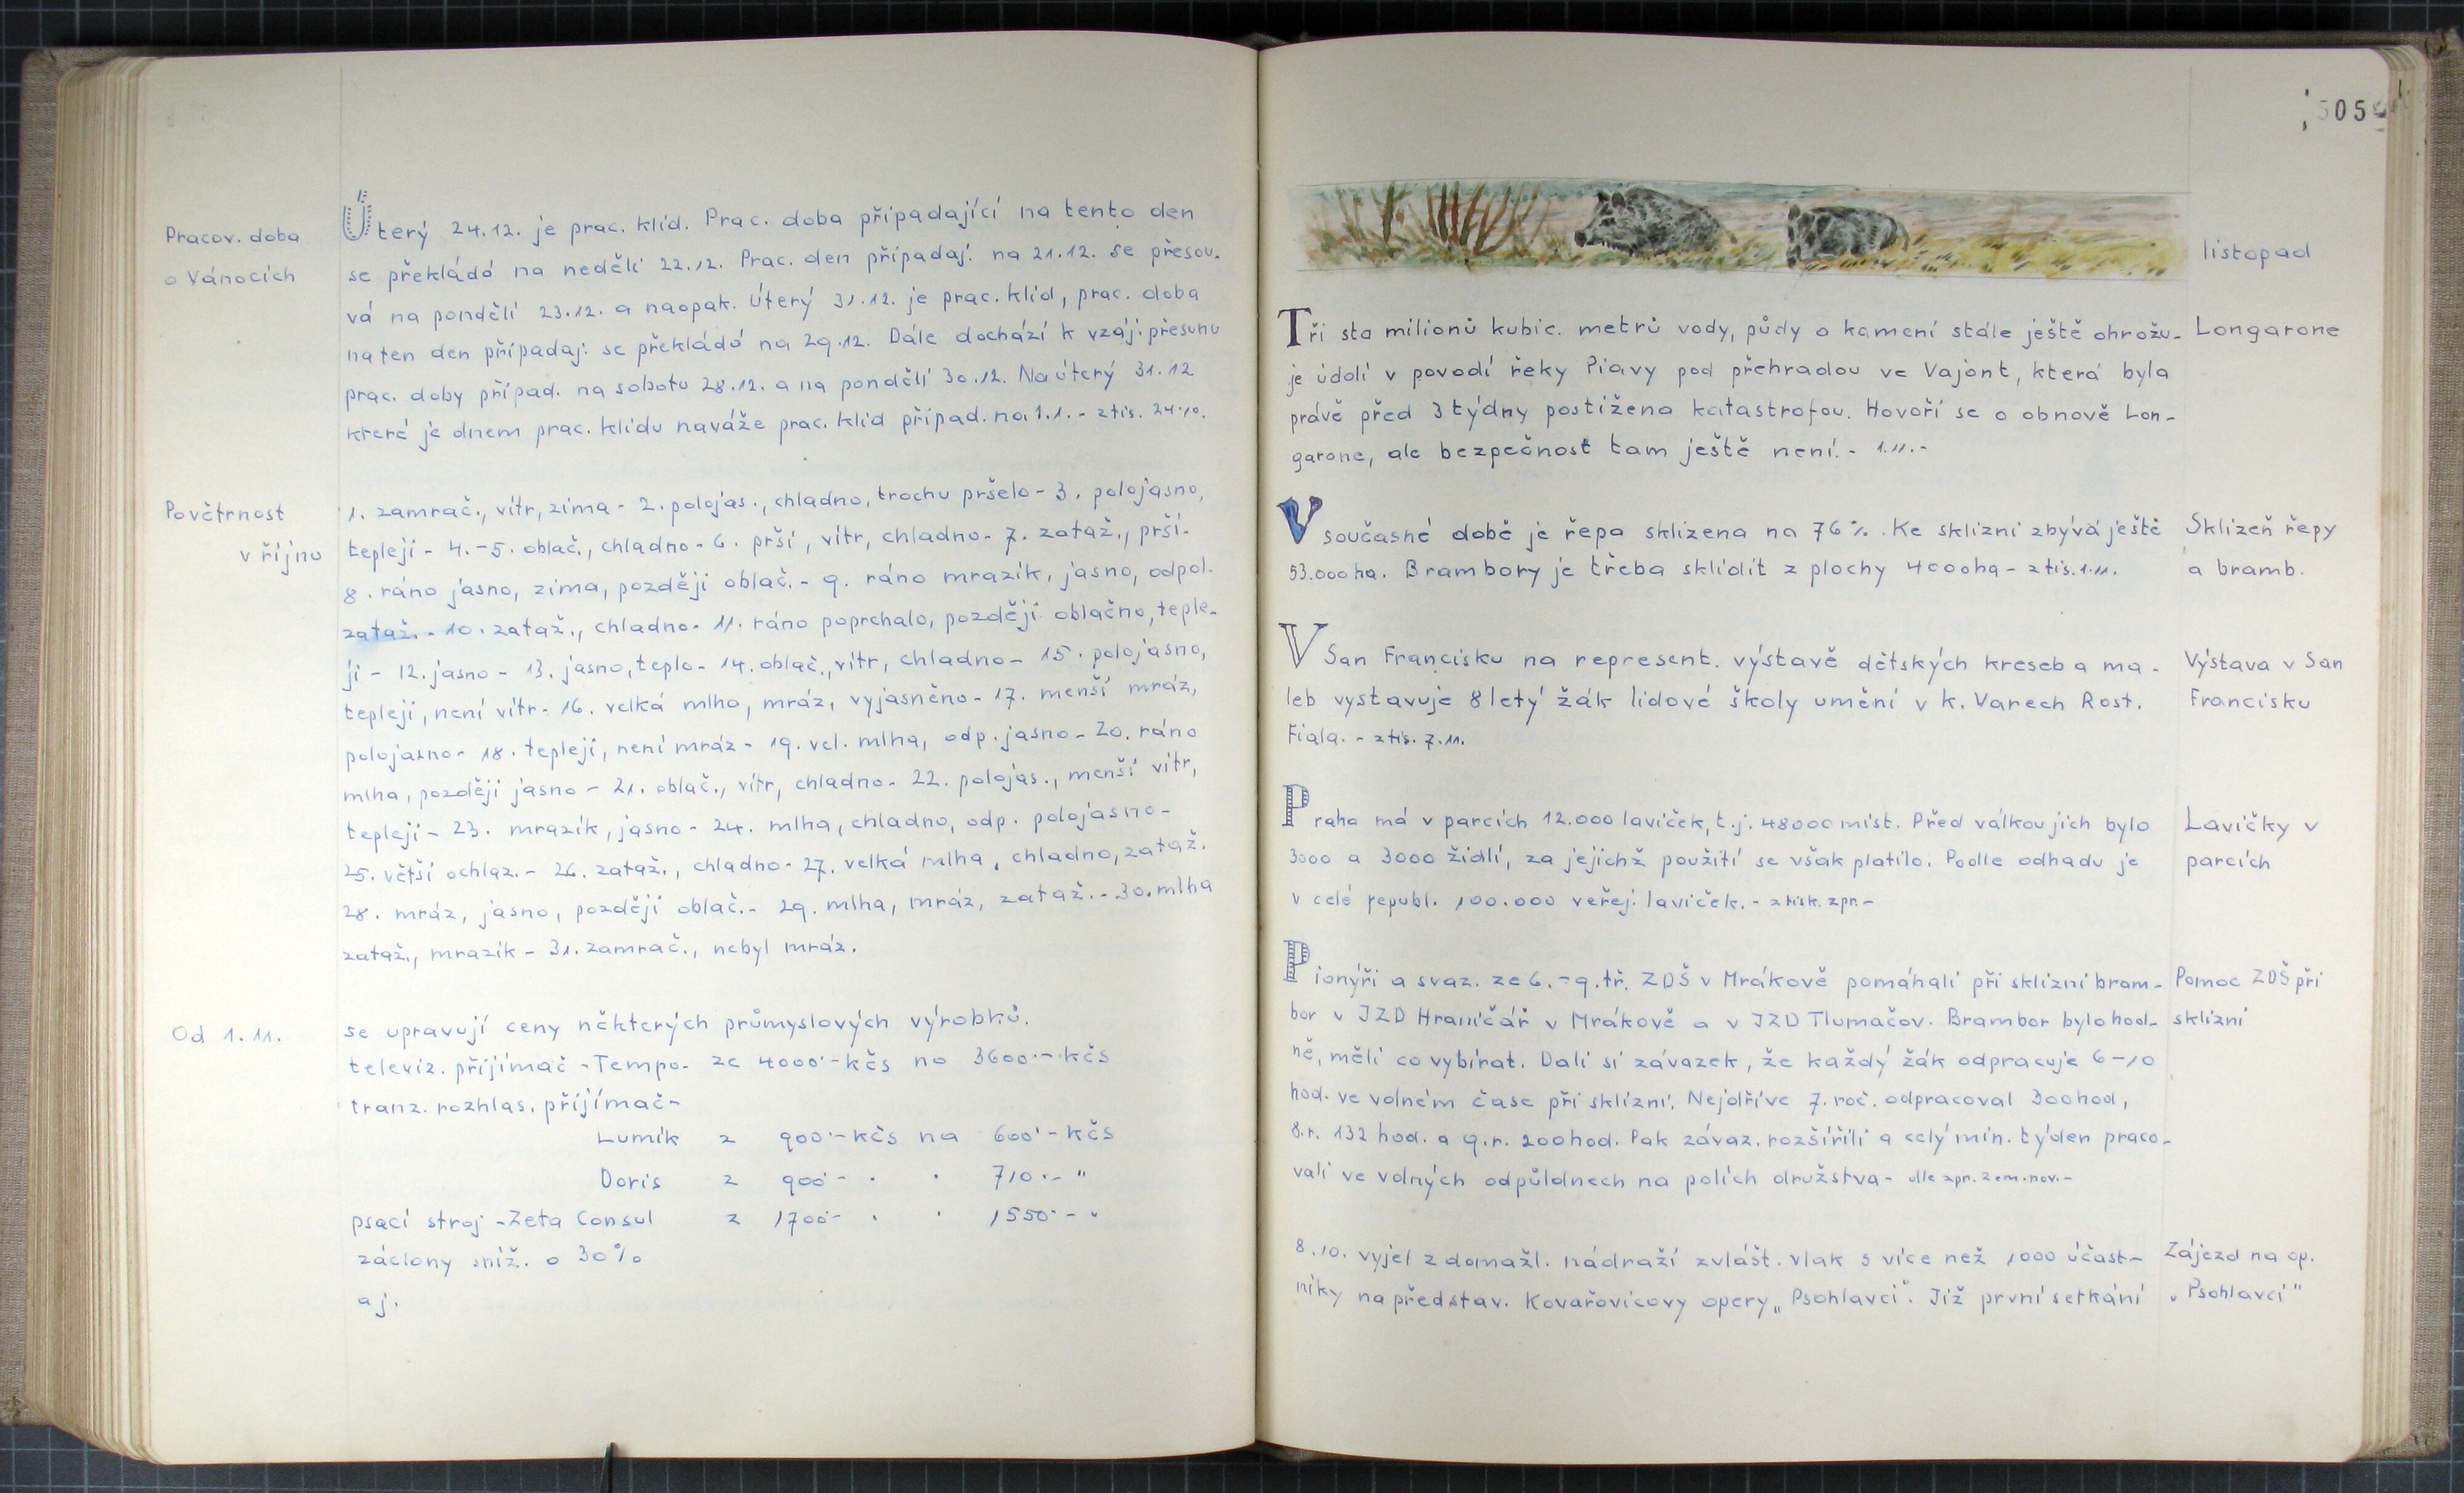 Pracov. doba
o Vánocích
Úterý 24.12. je prac. klid. Prac. doba připadající na tento den
se překládá na neděli 22.12. Prac. den připadaj. na 21.12. se přesou-
vá na pondělí 23.12. a naopak. Úterý 31.12. je prac. klid, prac. doba
na ten den připadaj. se překládá na 29.12. Dále dochází k vzáj. přesunu
prac. doby připad. na sobotu 28.12. a na pondělí 30.12. Na úterý 31.12
které je dnem prac. klidu naváže prac. klid připad. na 1.1. - z tis. 24.10.
Povětrnost
v říjnu
1. zamrač., vítr, zima - 2. polojas., chladno, trochu pršelo - 3. polojasno,
tepleji - 4.-5. oblač., chladno - 6. prší, vítr, chladno - 7. zataž., prší -
8. ráno jasno, zima, později oblač. - 9. ráno mrazík, jasno, odpol.
zataž. - 10. zataž., chladno - 11. ráno poprchalo, později oblačno, teple-
ji - 12. jasno - 13. jasno, teplo - 14. oblač., vítr, chladno - 15. polojasno,
tepleji, není vítr - 16. velká mlha, mráz, vyjasněno - 17. menší mráz,
polojasno - 18. tepleji, není mráz - 19. vel. mlha, odp. jasno - 20. ráno
mlha, později jasno - 21. oblač., vítr, chladno - 22. polojas., menší vítr,
tepleji - 23. mrazík, jasno - 24. mlha, chladno, odp. polojasno -
25. větší ochlaz. - 26. zataž., chladno - 27. velká mlha, chladno, zataž.
28. mráz, jasno, později oblač. - 29. mlha, mráz, zataž. - 30. mlha
zataž., mrazík - 31. zamrač., nebyl mráz.
Od 1.11.
se upravují ceny některých průmyslových výrobků.
televiz. přijímač - Tempo - ze 4000·- kčs na 3600·- kčs
tranz. rozhlas. přijímač -
Lumík z 900·- kčs na 600·- kčs
Doris z 900·- · · 710·- "
psací stroj - Zeta Consul z 1700·- · · 1550·- "
záclony sníž. o 30%
aj.
505
listopad
Tři sta milionů kubic. metrů vody, půdy a kamení stále ještě ohrožu-
je údolí v povodí řeky Piavy pod přehradou ve Vajont, která byla
právě před 3 týdny postižena katastrofou. Hovoří se o obnově Lon-
garone, ale bezpečnost tam ještě není. - 1.11. -
Longarone
V současné době je řepa sklizena na 76%. Ke sklizni zbývá ještě
53.000 ha. Brambory je třeba sklidit z plochy 4000 ha - z tis. 1.11.
Sklizeň řepy
a bramb.
V San Francisku na represent. výstavě dětských kreseb a ma-
leb vystavuje 8 letý žák lidové školy umění v K. Varech Rost.
Fiala. - z tis. 7.11.
Výstava v San
Francisku
Praha má v parcích 12.000 laviček, t.j. 48000 míst. Před válkou jich bylo
3000 a 3000 židlí, za jejichž použití se však platilo. Podle odhadu je
v celé republ. 100.000 veřej. laviček. - z tisk. zpr. -
Lavičky v
parcích
Pionýři a svaz. ze 6.-9. tř. ZDŠ v Mrákově pomáhali při sklizni bram-
bor v JZD Hraničář v Mrákově a v JZD Tlumačov. Brambor bylo hod-
ně, měli co vybírat. Dali si závazek, že každý žák odpracuje 6-10
hod. ve volném čase při sklizni. Nejdříve 7. roč. odpracoval 300 hod,
8.r. 132 hod. a 9.r. 200 hod. Pak závaz. rozšířili a celý min. týden praco-
vali ve volných odpůldnech na polích družstva - dle zpr. zem. nov. -
Pomoc ZDŠ při
sklizni
8.10. vyjel z domažl. nádraží zvlášt. vlak s více než 1000 účast-
níky na představ. Kovařovicovy opery „Psohlavci". Již první setkání
Zájezd na op.
„Psohlavci"